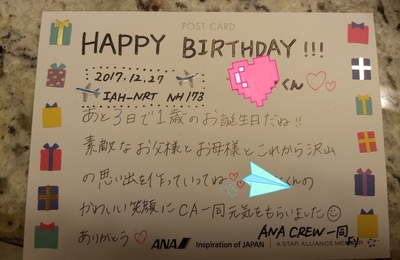 POST CARD
HAPPY BIRTHDAY!!!
2017.12.27
IAH-NRT NH173
くん♡♡
あと3日で1歳のお誕生日だね!!
素敵なお父様とお母様とこれから沢山
の思い出を作っていってね♡ くんの
かわいい笑顔にCA一同元気をもらいました☺
ありがとう♡
ANA CREW一同より
ANA Inspiration of JAPAN
A STAR ALLIANCE MEMBER